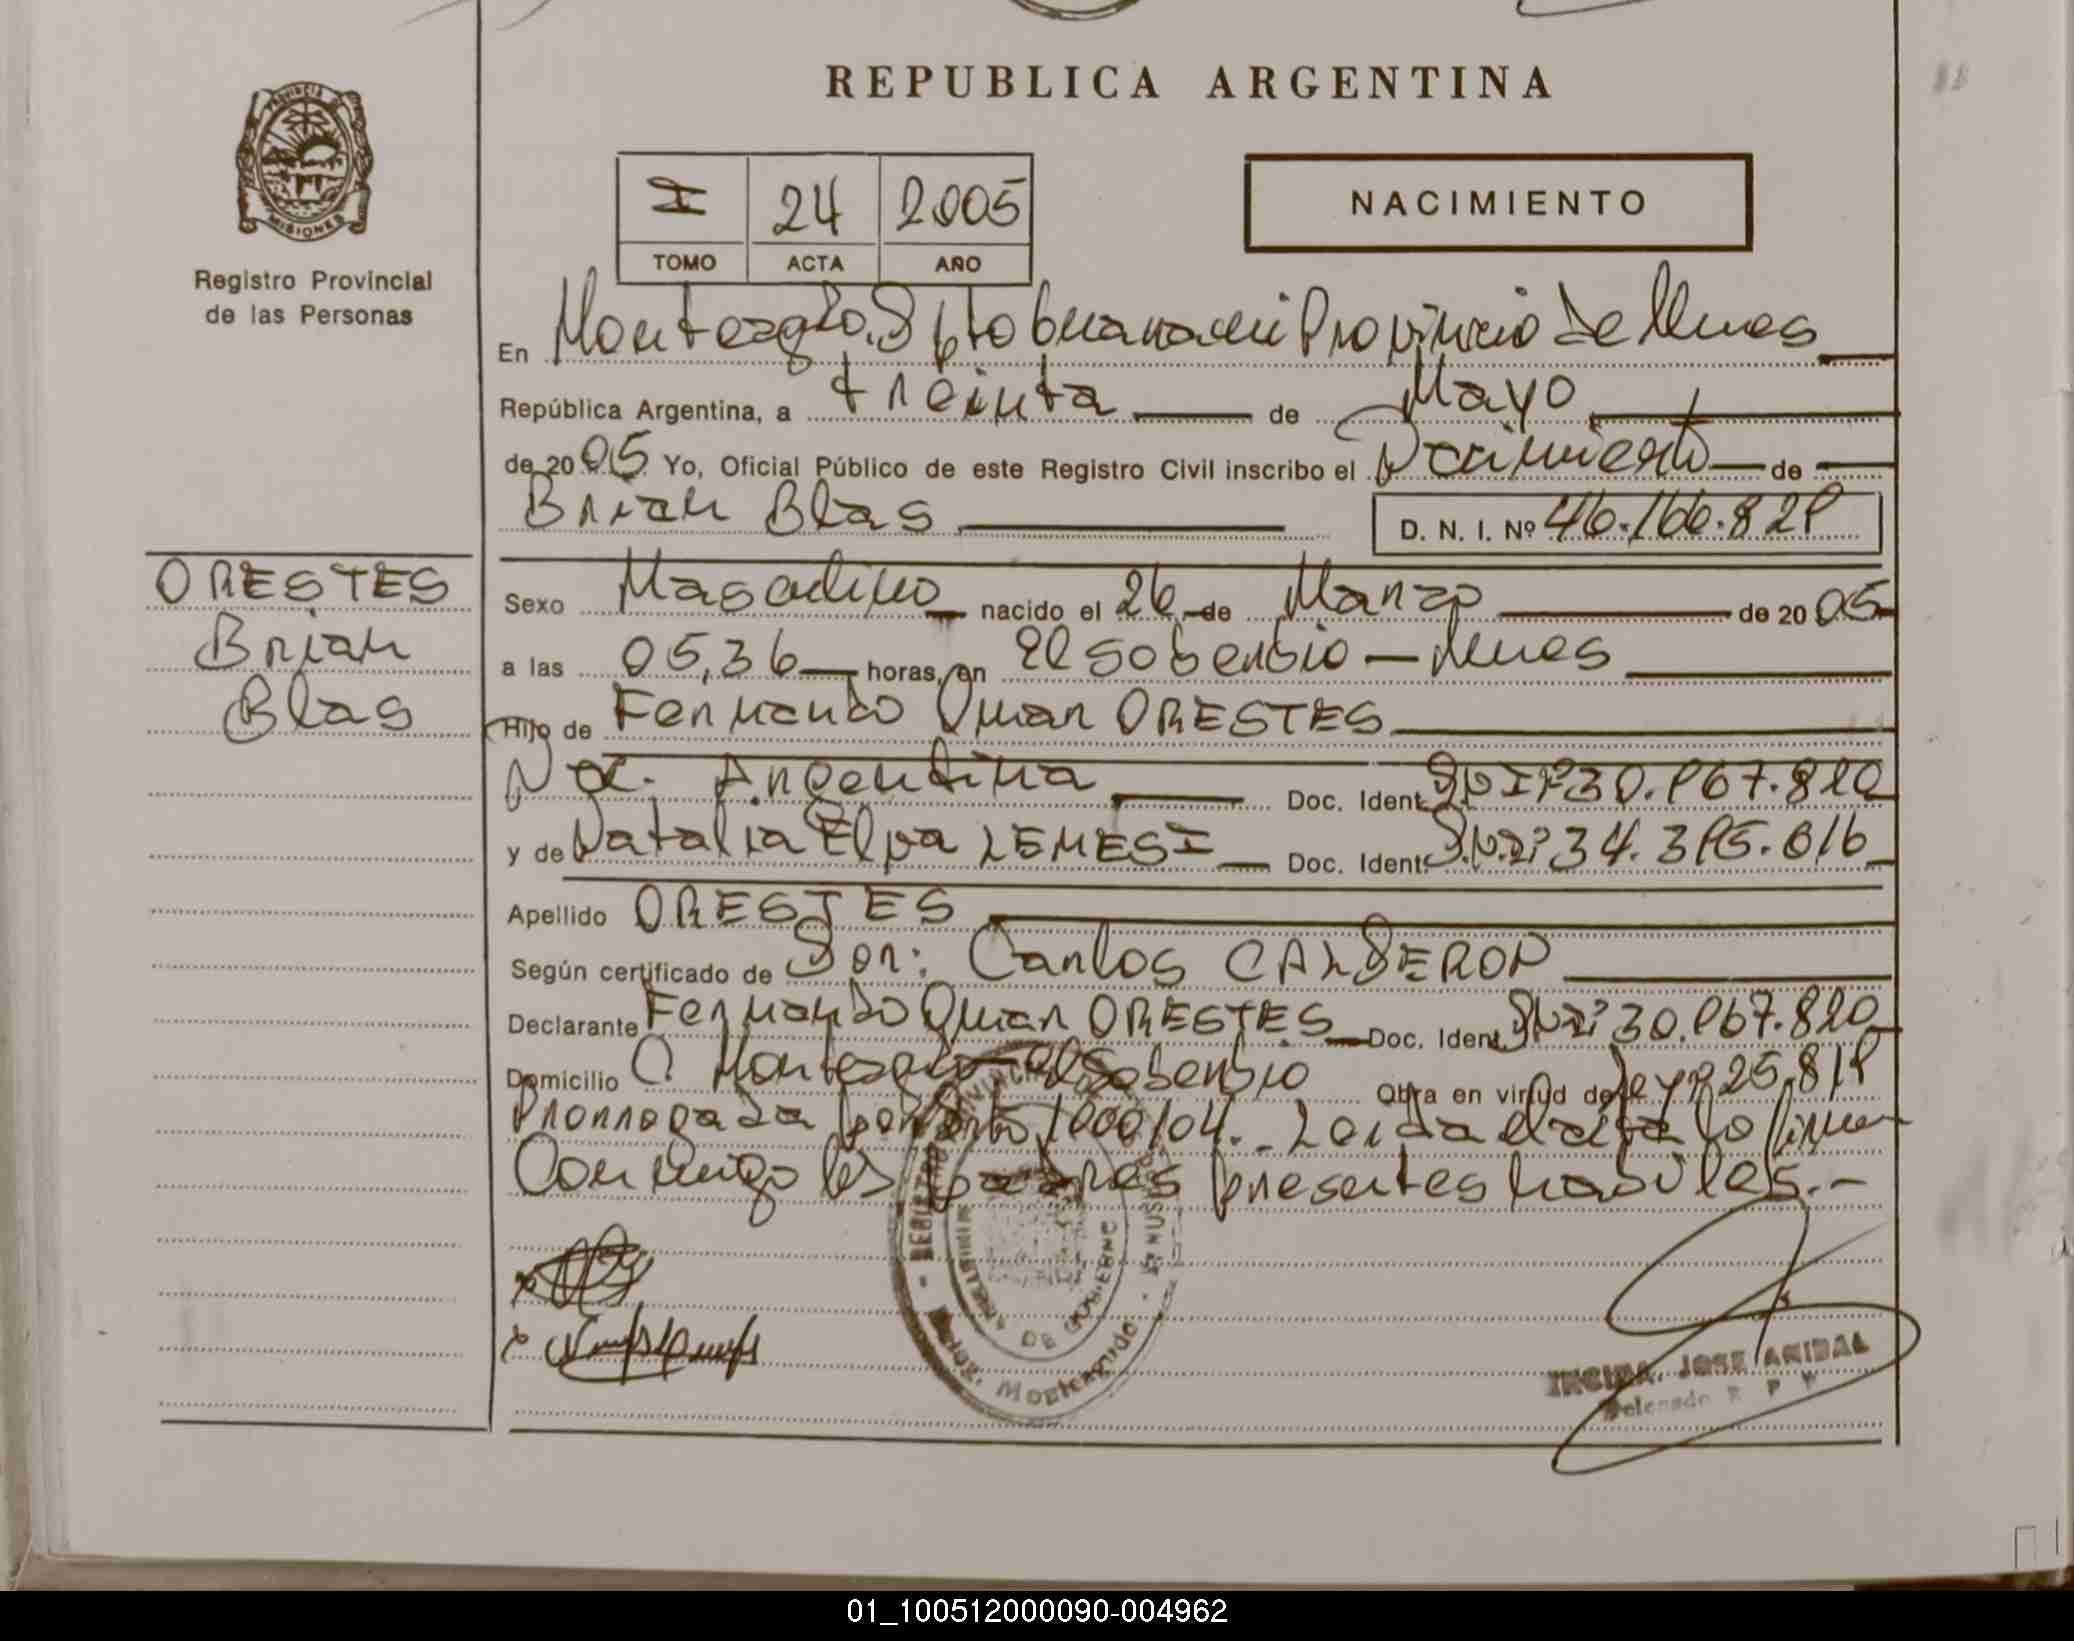 REPUBLICA ARGENTINA
PROVINCIA DE
MISIONES
Registro Provincial
de las Personas
I 24 2005
TOMO ACTA AÑO
NACIMIENTO
En Monteagdo. Dpto Guarani Provincia de Mnes
República Argentina, a treinta de Mayo
de 2005 Yo, Oficial Público de este Registro Civil inscribo el Nacimiento de
Brian Blas D. N. I. Nº 46.166.829
ORESTES
Brian
Blas
Sexo Masculino nacido el 26 de Marzo de 2005
a las 05,36 horas, en El Soberbio - Mnes
Hijo de Fernando Omar ORESTES
Nac. Argentina Doc. Ident. D.N.I Nº 30.967.820
y de Natalia Elva LEMESI Doc. Ident. D.N.I: 34.395.616
Apellido ORESTES
Según certificado de Dor: Carlos CALDERON
Declarante Fernando Omar ORESTES Doc. Ident. D.N.I: 30.967.820
Domicilio C. Monteagdo El Soberbio Obra en virtud de Ley Nº 25.819
Prorrogada por Dcto 1000/04. Leida el acta lo firman
Conmigo los padres presentes habiles.-
DE GOBIERNO
Deleg. Monteagudo
JOSE ANIBAL
Delegado R P P
01_100512000090-004962